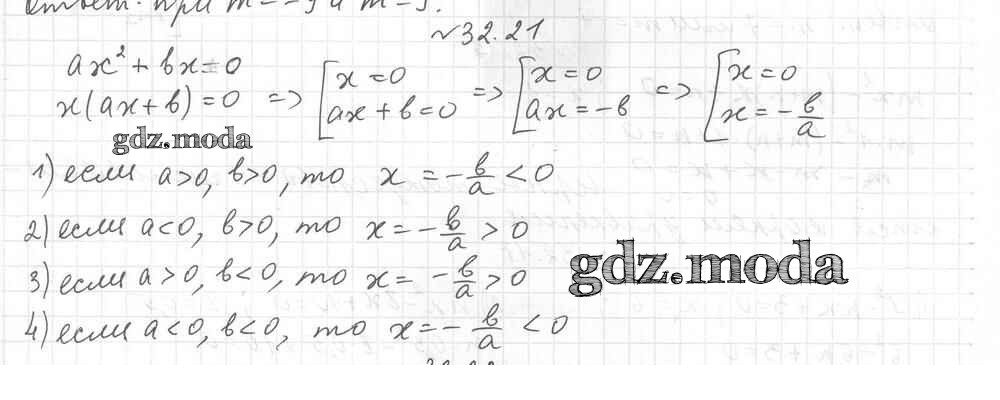 Ответ: при m = -9 и m = 9.
№32.21
ax² + bx = 0
x(ax + b) = 0 => [x = 0; ax + b = 0 => [x = 0; ax = -b => [x = 0; x = -b/a
gdz.moda
1) если a > 0, b > 0, то x = -b/a < 0
2) если a < 0, b > 0, то x = -b/a > 0
3) если a > 0, b < 0, то x = -b/a > 0
gdz.moda
4) если a < 0, b < 0, то x = -b/a < 0